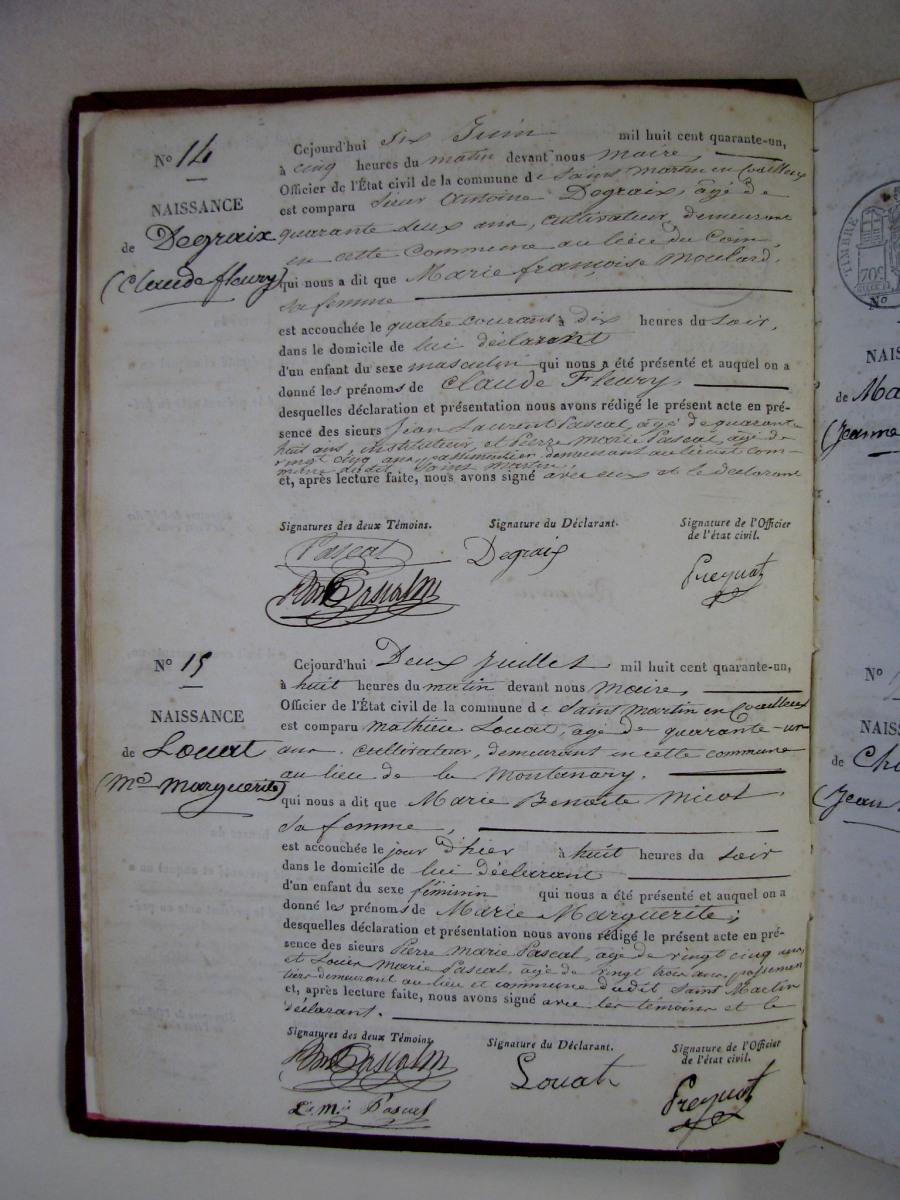 N° 14
NAISSANCE
de Degraix
(Claude fleury)
Cejourd'hui six Juin mil huit cent quarante-un,
à cinq heures du matin devant nous maire,
Officier de l'État civil de la commune de Saint Martin en Coailleux
est comparu sieur Antoine Degraix, âgé de
quarante deux ans, cultivateur, demeurant
en cette commune au lieu du Coin,
qui nous a dit que Marie françoise Moulard,
sa femme
est accouchée le quatre courant à dix heures du soir,
dans le domicile de lui déclarant
d'un enfant du sexe masculin qui nous a été présenté et auquel on a
donné les prénoms de Claude Fleury,
desquelles déclaration et présentation nous avons rédigé le présent acte en pré-
sence des sieurs Jean Laurent Pascal, âgé de quarante
huit ans, instituteur, et Pierre Marie Pascal, âgé de
vingt cinq ans, passementier demeurant au lieu et com-
mune dudit Saint Martin,
et, après lecture faite, nous avons signé avec eux et le déclarant
Signatures des deux Témoins. Signature du Déclarant. Signature de l'Officier
de l'état civil.
Pascal Degraix Preynat
Pascal
N° 15
NAISSANCE
de Louat
(Mie Marguerite)
Cejourd'hui Deux Juillet mil huit cent quarante-un,
à huit heures du matin devant nous maire,
Officier de l'État civil de la commune de Saint Martin en Coailleux
est comparu Mathieu Louat, âgé de quarante-un
ans, cultivateur, demeurant en cette commune
au lieu de la Montenary.
qui nous a dit que Marie Benoite Micol,
sa femme,
est accouchée le jour d'hier à huit heures du soir
dans le domicile de lui déclarant
d'un enfant du sexe féminin qui nous a été présenté et auquel on a
donné les prénoms de Marie Marguerite;
desquelles déclaration et présentation nous avons rédigé le présent acte en pré-
sence des sieurs Pierre Marie Pascal, âgé de vingt cinq ans,
et Louis Marie Pascal, âgé de vingt trois ans, passemen
tiers demeurant au lieu et commune dudit Saint Martin
et, après lecture faite, nous avons signé avec les témoins et le
déclarant.
Signatures des deux Témoins. Signature du Déclarant. Signature de l'Officier
de l'état civil.
Pascal Louat Preynat
Ls Mie Pascal
TIMBRE
N°
NAIS
de Ma
(Jeanne
N°
NAIS
de Ch
(Jean